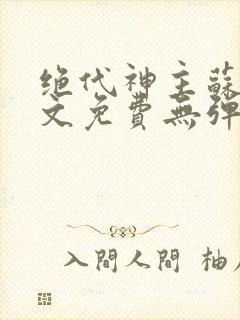 绝代神主蘇
文免費無彈
入間人間 柚